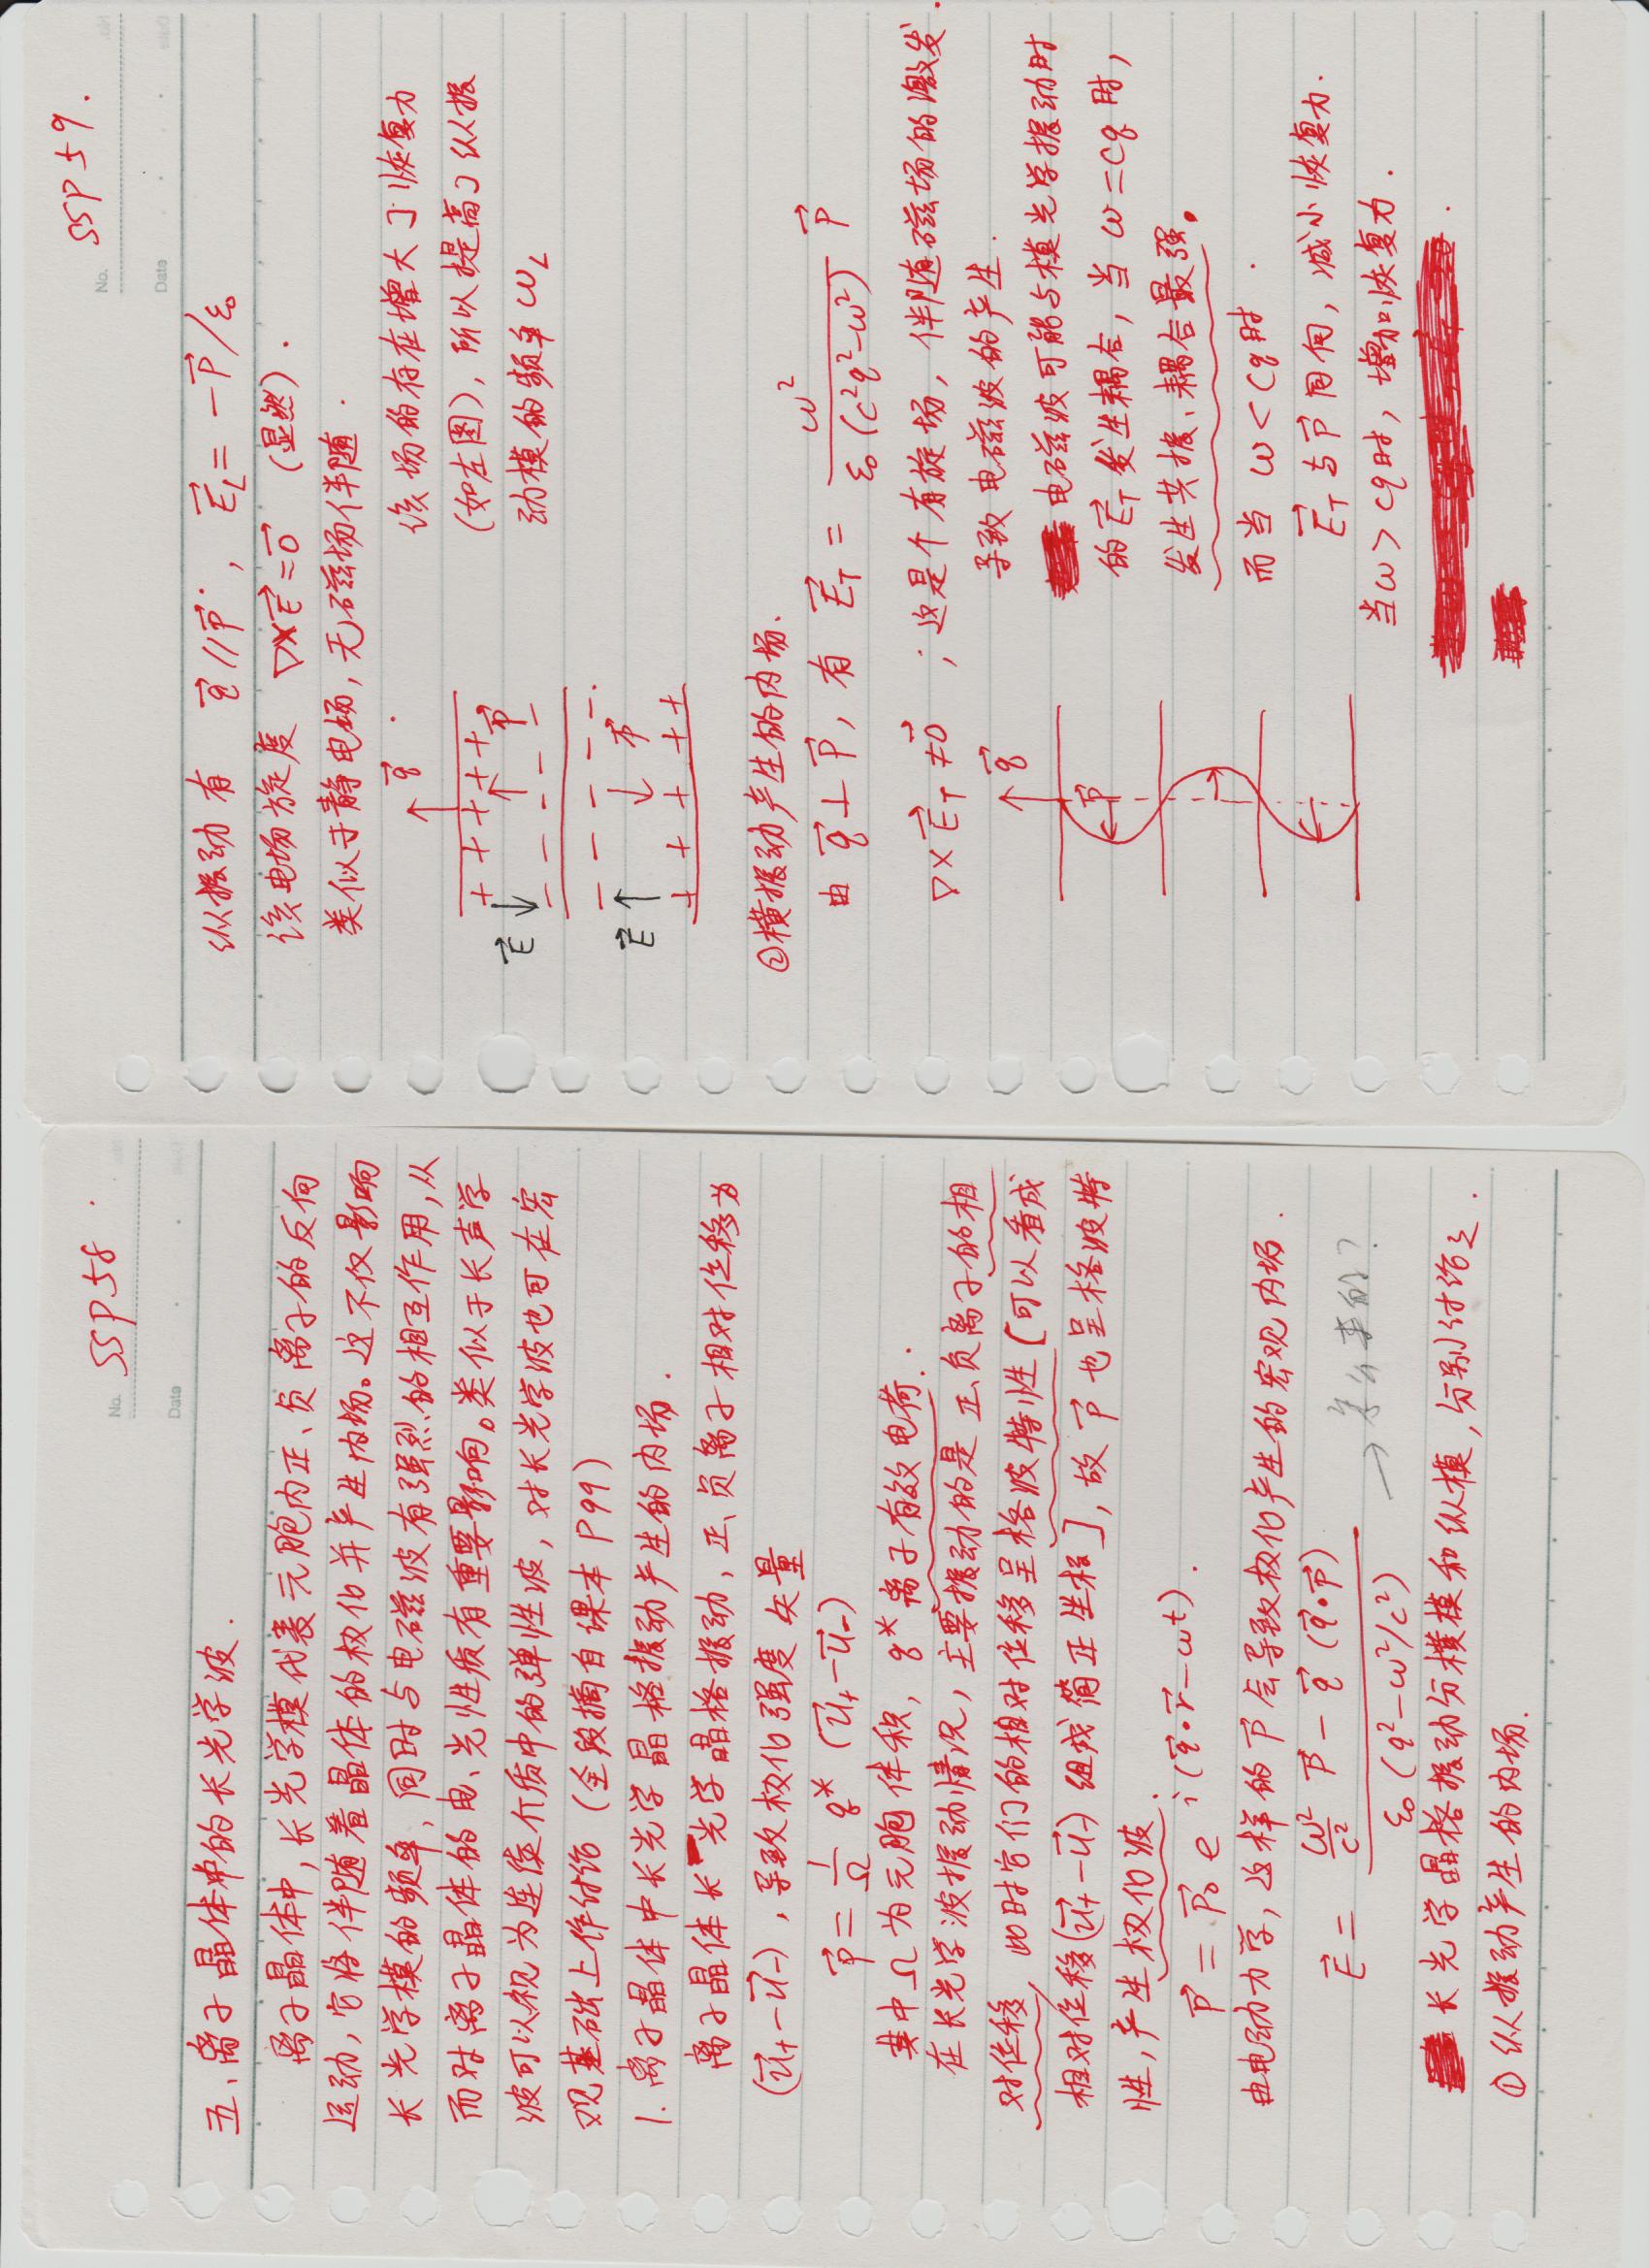 No. SSP58
Date
五、离子晶体中的长光学波.
离子晶体中,长光学模代表元胞内正、负离子的反向
运动,它将伴随着晶体的极化并产生内场。这不仅影响
长光学模的频率,同时与电磁波有强烈的相互作用,从
而对离子晶体的电、光性质有重要影响。类似于长声学
波可以视为连续介质中的弹性波,对长光学波也可在宏
观基础上作讨论(全段摘自课本P99)
1. 离子晶体中长光学晶格振动产生的内场.
离子晶体长光学晶格振动,正、负离子相对位移为
(u⃗₊-u⃗₋),导致极化强度矢量
P⃗ = 1/Ω q* (u⃗₊-u⃗₋)
其中Ω为元胞体积,q*离子有效电荷.
在长光学波振动情况,主要振动的是正、负离子的相
对位移,此时它们的相对位移呈格波特性[可以看成
相对位移(u⃗₊-u⃗₋)组成简正坐标],故P⃗也呈格波特
性,产生极化波.
P⃗ = P⃗₀ e^{i(q⃗·r⃗-ωt)}.
由电动力学,这样的P⃗会导致极化产生的宏观内场.
E⃗ = (ω²/c² P⃗ - q⃗(q⃗·P⃗)) / (ε₀(q²-ω²/c²)) → 怎么来的?
长光学晶格振动分横模和纵模,分别讨论之.
① 纵振动产生的内场.
No. SSP59.
Date
纵振动有 q⃗∥P⃗, E⃗_L = -P⃗/ε₀
该电场旋度 ∇×E⃗=0⃗ (显然).
类似于静电场,无磁场伴随.
q⃗
+ + + + +
E⃗ ↓ ↑ P⃗
- - - - -
- - - - -
E⃗ ↑ ↓ P⃗
+ + + + +
该场的存在增大了恢复力
(如左图),所以提高了纵振
动模的频率ω_L
②横振动产生的内场.
由 q⃗⊥P⃗, 有 E⃗_T = ω²/(ε₀(c²q²-ω²)) P⃗
∇×E⃗_T≠0⃗ ;这是个有旋场,伴随磁场的激发.
导致电磁波的产生.
q⃗
P⃗
电磁波可能与横光学振动时
的E⃗_T发生耦合,当ω=cq时,
发生共振、耦合最强。
而当 ω<cq时.
E⃗_T与P⃗同向,减小恢复力.
当ω>cq时,增加恢复力.